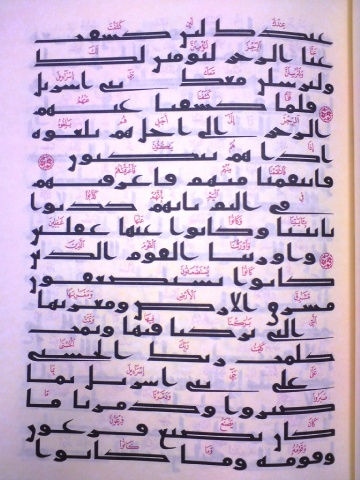 عندك لئن كشفت
عنا الرجز لنؤمنن لك
ولنرسلن معك بني اسرئيل
فلما كشفنا عنهم
الرجز الى اجل هم بلغوه
اذا هم ينكثون
فانتقمنا منهم فاغرقنهم
في اليم بانهم كذبوا
بايتنا وكانوا عنها غفلين
واورثنا القوم الذين
كانوا يستضعفون
مشرق الارض ومغربها
التي بركنا فيها وتمت
كلمت ربك الحسنى
على بني اسرئيل بما
صبروا ودمرنا ما
كان يصنع فرعون
وقومه وما كانوا